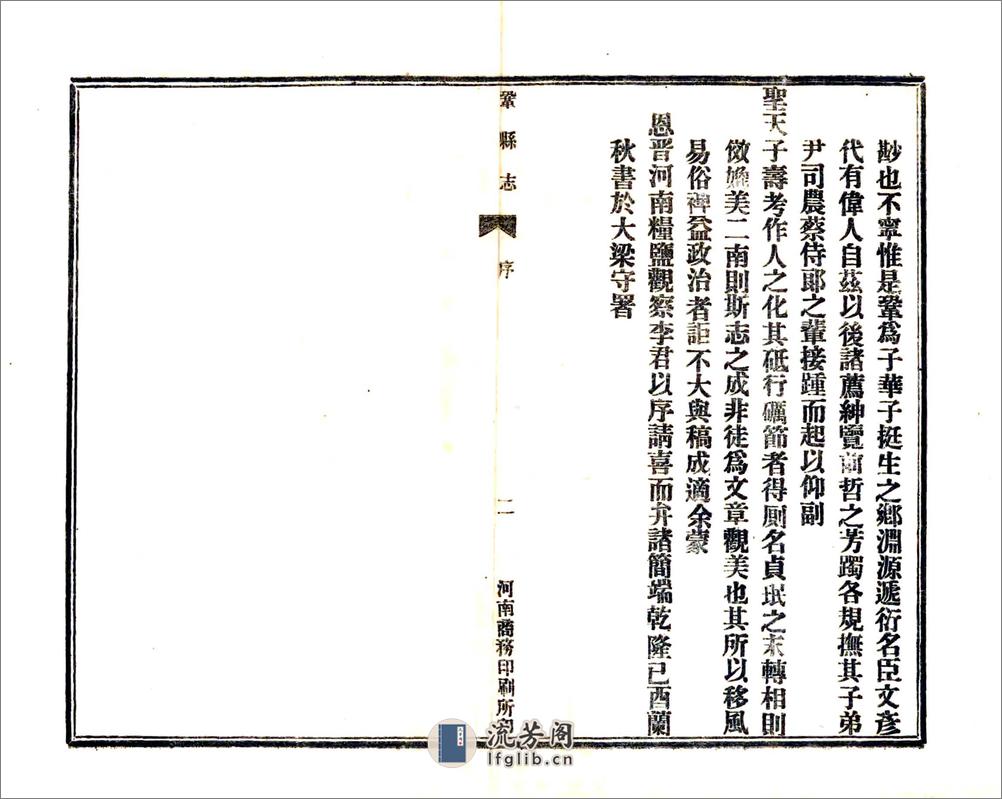 尠也不寧惟是鞏爲子華子挺生之鄉淵源遞衍名臣文彥
代有偉人自茲以後諸薦紳覽前哲之芳躅各規撫其子弟
尹司農蔡侍郎之輩接踵而起以仰副
聖天子壽考作人之化其砥行礪節者得厠名貞珉之末轉相則
倣媲美二南則斯志之成非徒爲文章觀美也其所以移風
易俗裨益政治者詎不大與稿成適余蒙
恩晉河南糧鹽觀察李君以序請喜而弁諸簡端乾隆已酉蘭
秋書於大梁守署
鞏縣志
序
二
河南商務印刷所印
流芳阁
lfglib.cn